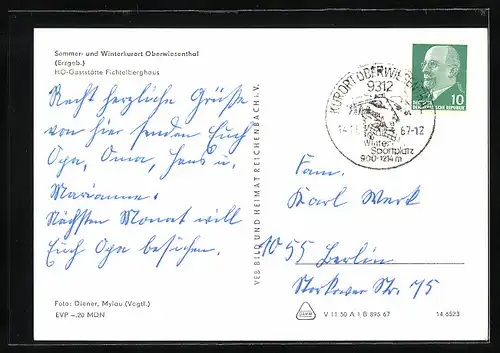 Sommer- und Winterkurort Oberwiesenthal
(Erzgeb.)
HO-Gaststätte Fichtelberghaus
Recht herzliche Grüße
von hier senden Euch
Opa, Oma, Hans u.
Marianne.
Nächsten Monat will
Euch Opa besuchen.
Foto: Diener, Mylau (Vogtl.)
EVP –.20 MDN
VEB BILD UND HEIMAT REICHENBACH I. V.
KURORT OBERWIESENTHAL
9312
67-12
Winter-
Sportplatz
900-1214m
DEUTSCHE
DEMOKRATISCHE REPUBLIK
10
Fam.
Karl Werk
1055 Berlin
Storkower Str. 75
V 11 50 A 1 B 896 67
14 6523